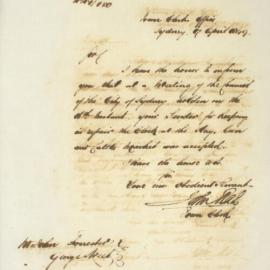 Town Clerk's Office
Sydney 17 April 1849
Sir
I have the honor to inform
you that at a Meeting of the Council
of the City of Sydney holden on the
instant your Tender for keeping
in repair the Clock at the Hay, Corn
and Cattle Market was accepted.
I have the honor
Your Obedient Servant
Town Clerk
Mr John Forrester
George Street